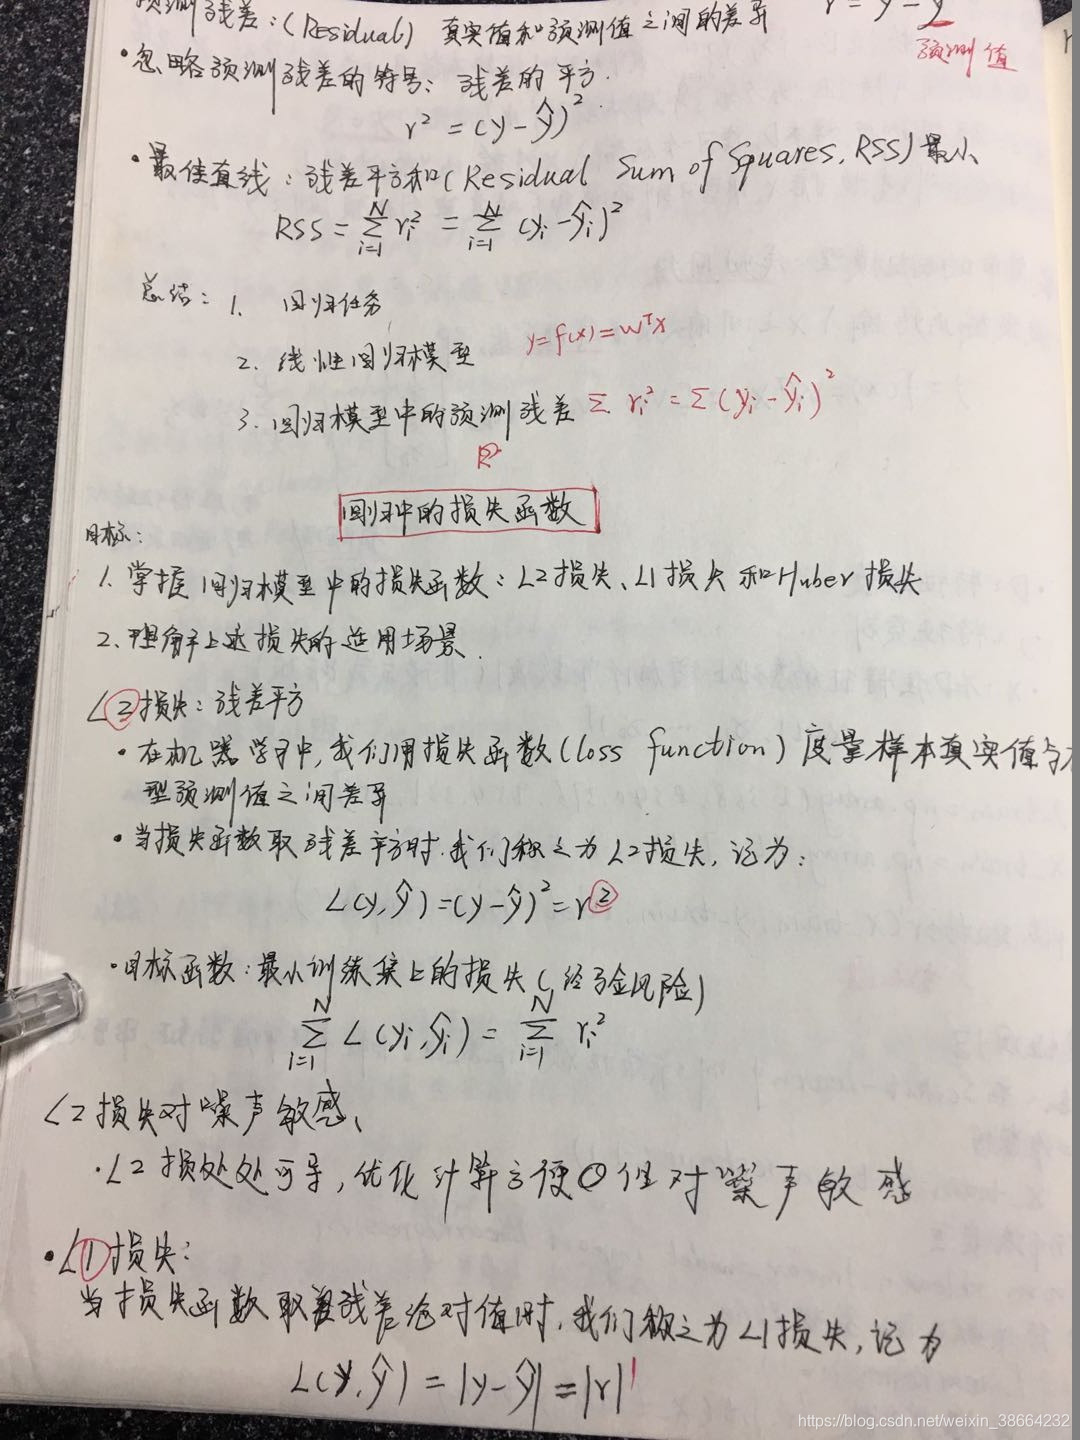 预测残差:(Residual) 真实值和预测值之间的差异 r = y - ŷ
预测值
· 忽略预测残差的符号: 残差的平方.
r² = (y-ŷ)²
· 最佳直线: 残差平方和(Residual Sum of Squares, RSS)最小
RSS = Σᵢ₌₁ᴺ rᵢ² = Σᵢ₌₁ᴺ (yᵢ-ŷᵢ)²
总结: 1. 回归任务
2. 线性回归模型 y=f(x)=wᵀx
3. 回归模型中的预测残差 Σ rᵢ² = Σ(yᵢ-ŷᵢ)²
回归中的损失函数
目标:
1. 掌握回归模型中的损失函数: L2损失、L1损失和Huber损失
2. 理解上述损失的适用场景.
L2损失: 残差平方
· 在机器学习中, 我们用损失函数(loss function)度量样本真实值与
型预测值之间差异
· 当损失函数取残差平方时, 我们称之为L2损失, 记为:
L(y,ŷ)=(y-ŷ)²=r²
· 目标函数: 最小训练集上的损失(经验风险)
Σᵢ₌₁ᴺ L(yᵢ,ŷᵢ) = Σᵢ₌₁ᴺ rᵢ²
L2损失对噪声敏感、
· L2损处处可导, 优化计算方便 但对噪声敏感
· L1损失:
当损失函数取残差绝对值时, 我们称之为L1损失, 记为
L(y,ŷ) = |y-ŷ| = |r|¹
https://blog.csdn.net/weixin_38664232